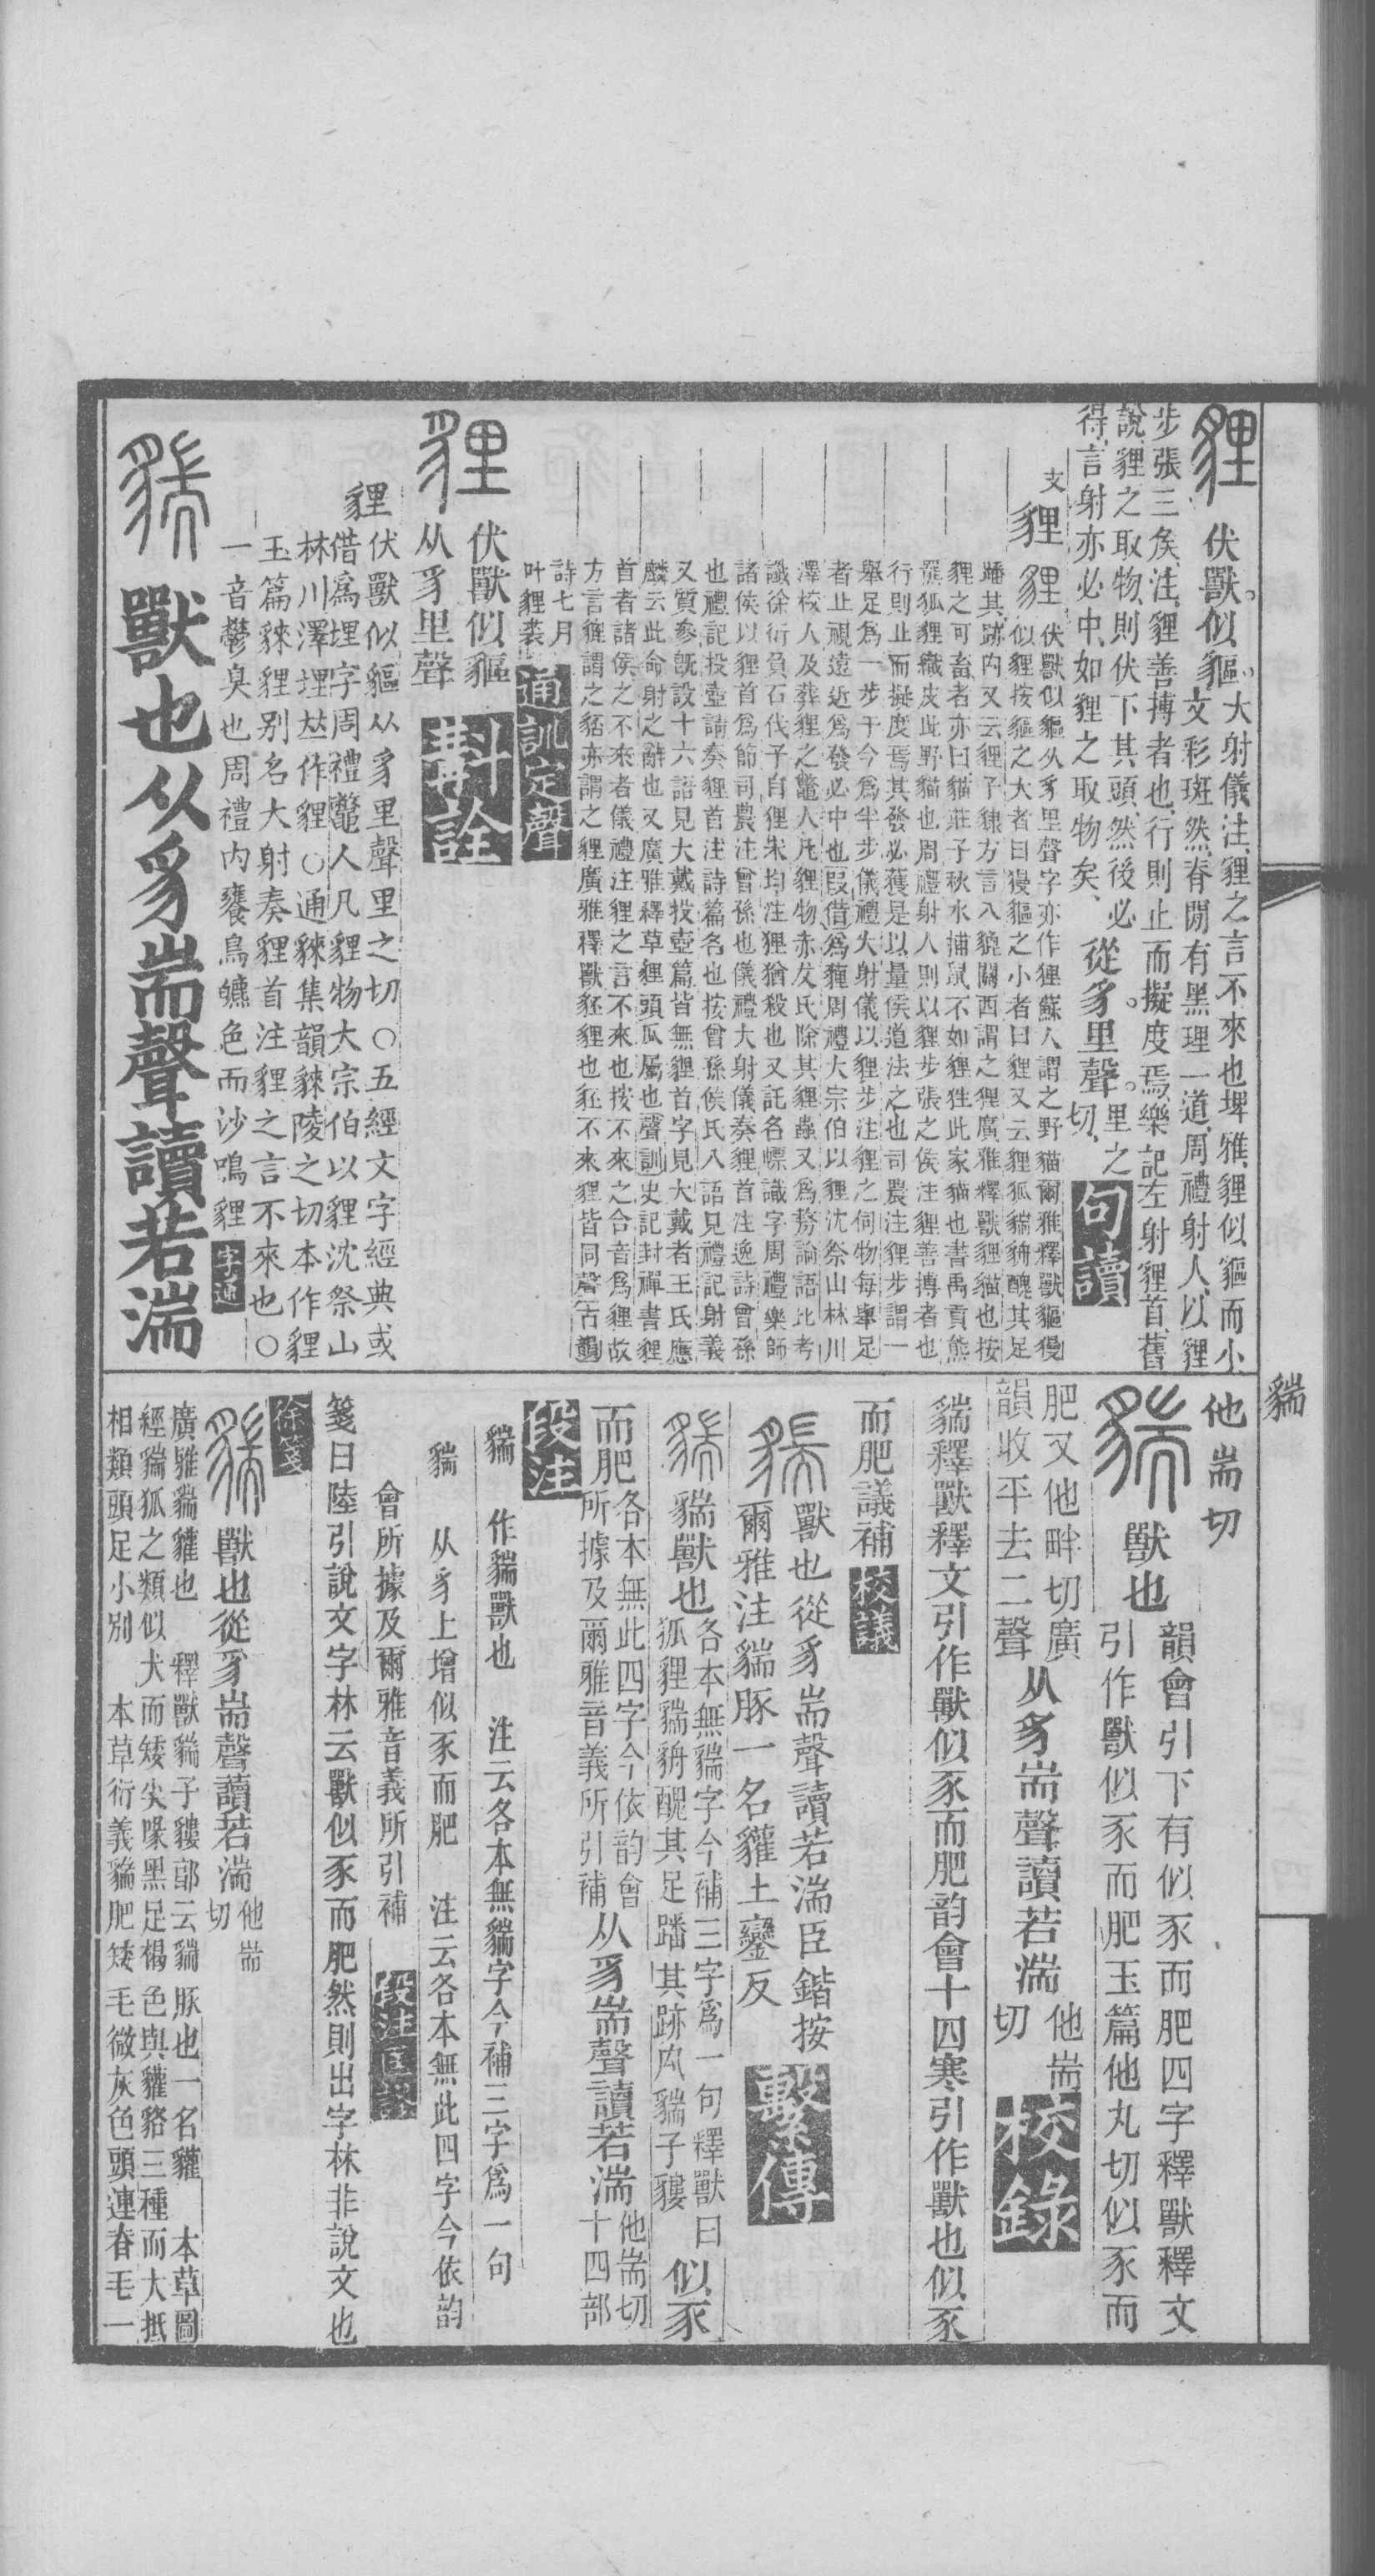 貍伏獸似貙
大射儀注貍之言不來也埤雅貍似貙而小
文彩斑然脊閒有黑理一道周禮射人以貍
步張三矦注貍善搏者也行則止而擬度焉樂記左射貍首舊
說貍之取物則伏下其頭然後必
得言射亦必中如貍之取物矣
從豸里聲里之切句讀
支貍
貍伏獸似貙从豸里聲字亦作狸蘇人謂之野貓爾雅釋獸貙獌
似貍按貙之大者曰獌貙之小者曰貍又云貍狐貒貈醜其足
蹯其跡内又云貍子𧳙方言八貔關西謂之狸廣雅釋獸貍貓也按
貍之可畜者亦曰貓莊子秋水捕鼠不如貍狌此家貓也書禹貢熊
羆狐貍織皮此野貓也周禮射人則以貍步張之侯注貍善搏者也
行則止而擬度焉其發必獲是以量侯道法之也司農注貍步謂一
舉足爲一步于今爲半步儀禮大射儀以貍步注貍之伺物每舉足
者止視遠近爲發必中也叚借爲薶周禮大宗伯以貍沈祭山林川
澤校人及葬貍之鼈人凡貍物赤犮氏除其貍蟲又爲務論語比考
讖徐衍負石伐子自貍宋均注狸猶殺也又託名幖識字周禮樂師
諸侯以貍首爲節司農注曾孫也儀禮大射儀奏貍首注逸詩曾孫
也禮記投壺請奏貍首注詩篇名也按曾孫侯氏八語見禮記射義
又質參既設十六語見大戴投壺篇皆無貍首字見大戴者王氏應
麟云此命射之辭也又廣雅釋草貍頭瓜屬也聲訓史記封禪書貍
首者諸侯之不來者儀禮注貍之言不來也按不來之合音爲貍故
方言貔謂之貊亦謂之貍廣雅釋獸豾貍也豾不來貍皆同聲古韻
詩七月
叶貍裘通訓定聲
貍伏獸似貙
从豸里聲斠詮
貍伏獸似貙从豸里聲里之切○五經文字經典或
借爲埋字周禮鼈人凡貍物大宗伯以貍沈祭山
林川澤埋𠀤作貍○通𧳟集韻𧳟陵之切本作貍
玉篇𧳟貍别名大射奏貍首注貍之言不來也○
一音鬱臭也周禮内饔鳥皫色而沙鳴貍字通
貒獸也从豸耑聲讀若湍
他耑切
貒獸也
韻會引下有似豕而肥四字釋獸釋文
引作獸似豕而肥玉篇他丸切似豕而
肥又他畔切廣
韻收平去二聲
从豸耑聲讀若湍他耑切校錄
貒釋獸釋文引作獸似豕而肥韵會十四寒引作獸也似豕
而肥議補校議
貒獸也從豸耑聲讀若湍臣鍇按
爾雅注貒豚一名貛土鑾反繫傳
貒貒獸也
各本無貒字今補三字爲一句釋獸曰
狐貍貒貈醜其足蹯其跡厹貒子貗
似豕
而肥
各本無此四字今依韵會
所據及爾雅音義所引補
从豸耑聲讀若湍
他耑切
十四部
段注
貒　作貒獸也　注云各本無貒字今補三字爲一句
貒　从豸上增似豕而肥　注云各本無此四字今依韵
會所據及爾雅音義所引補　段注匡謬
箋曰陸引說文字林云獸似豕而肥然則出字林非說文也
徐箋
貒獸也從豸耑聲讀若湍他耑切
廣雅貒貛也　釋獸貒子貗郭云貒豚也一名貛　本草圖
經貒狐之類似犬而矮尖喙黑足褐色與貛貉三種而大抵
相類頭足小別　本草衍義貒肥矮毛微灰色頭連脊毛一
貒